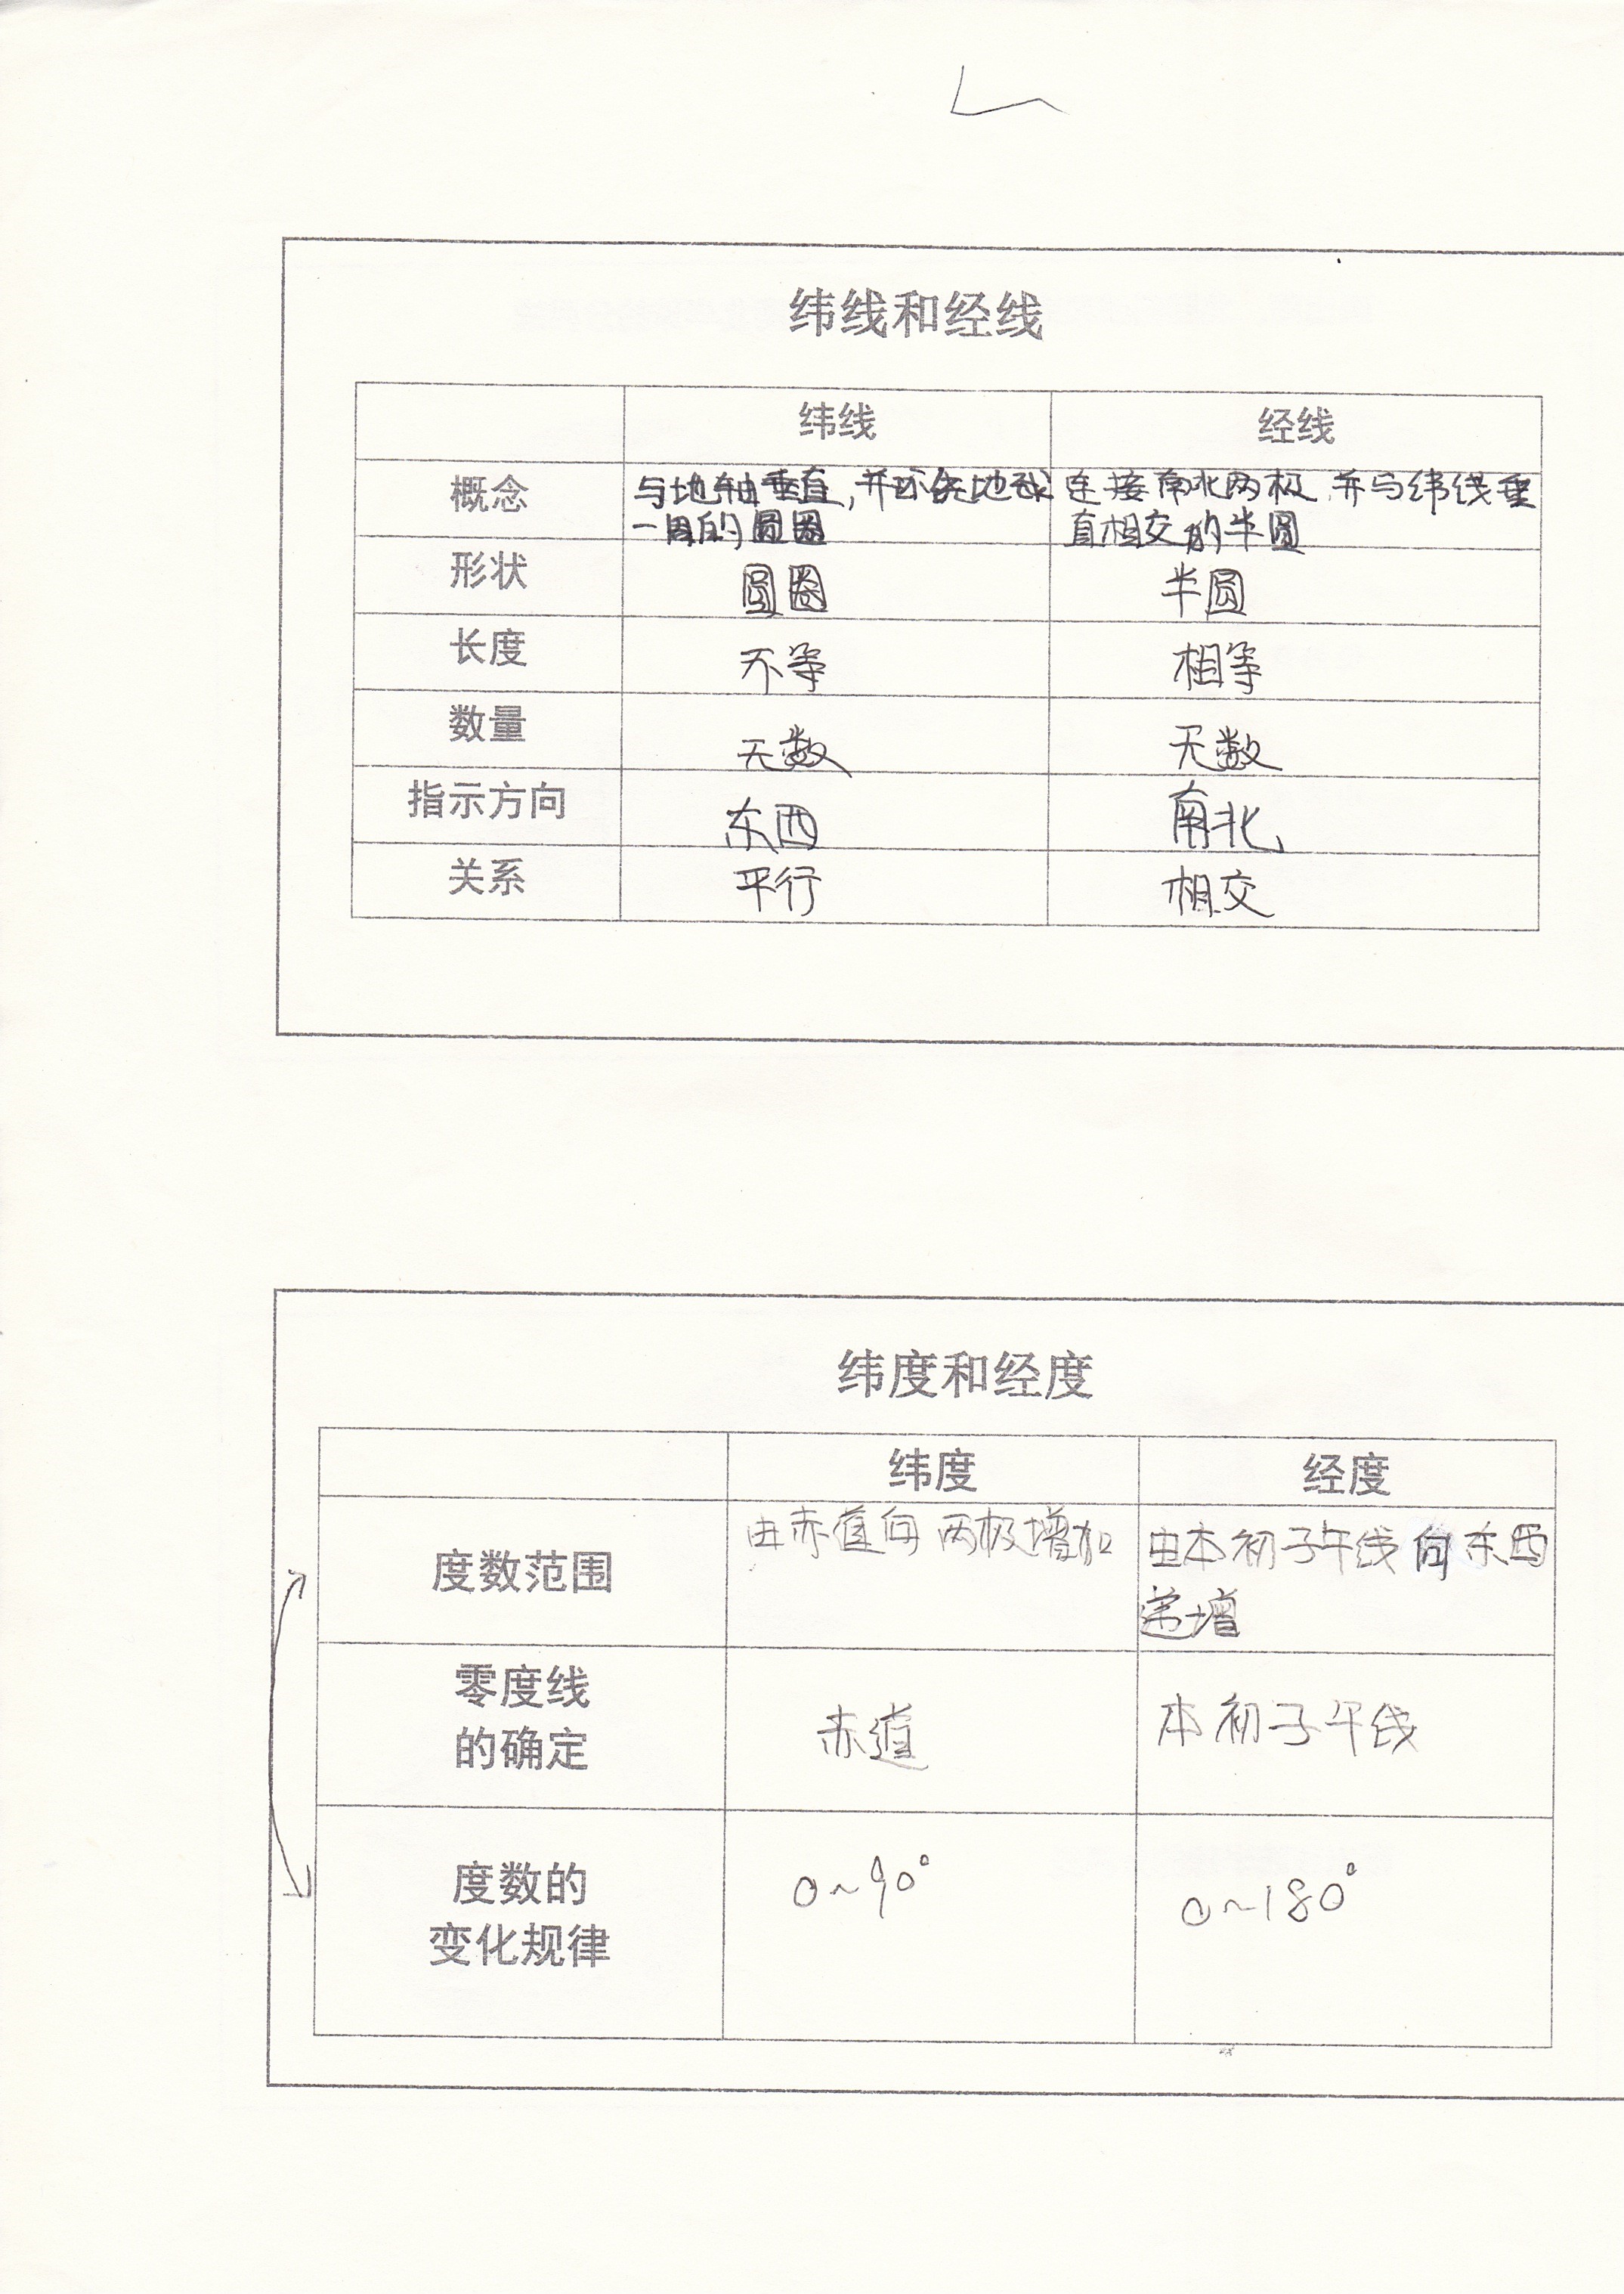 纬线和经线
纬线 经线
概念 与地轴垂直,并环绕地球 连接南北两极,并与纬线垂
一周的圆圈 直相交的半圆
形状 圆圈 半圆
长度 不等 相等
数量 无数 无数
指示方向 东西 南北
关系 平行 相交
纬度和经度
纬度 经度
度数范围 由赤道向两极增加 由本初子午线向东西
递增
零度线
的确定 赤道 本初子午线
度数的 0~90° 0~180°
变化规律